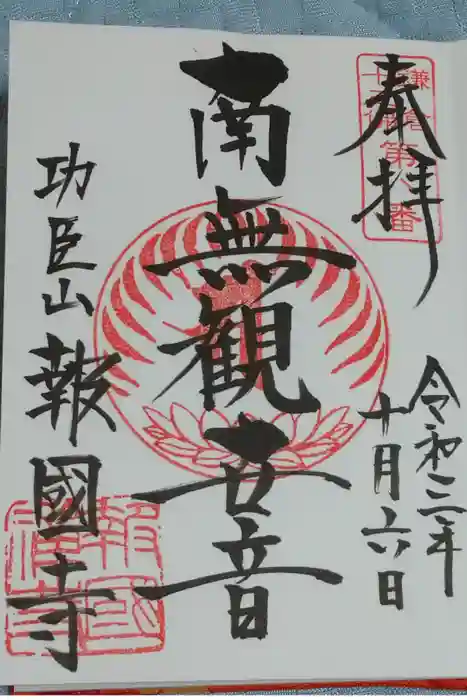 奉拝
鎌倉
十三佛
第八番
令和三年
十月六日
南無観世音
功臣山 報國寺
報國
禅寺